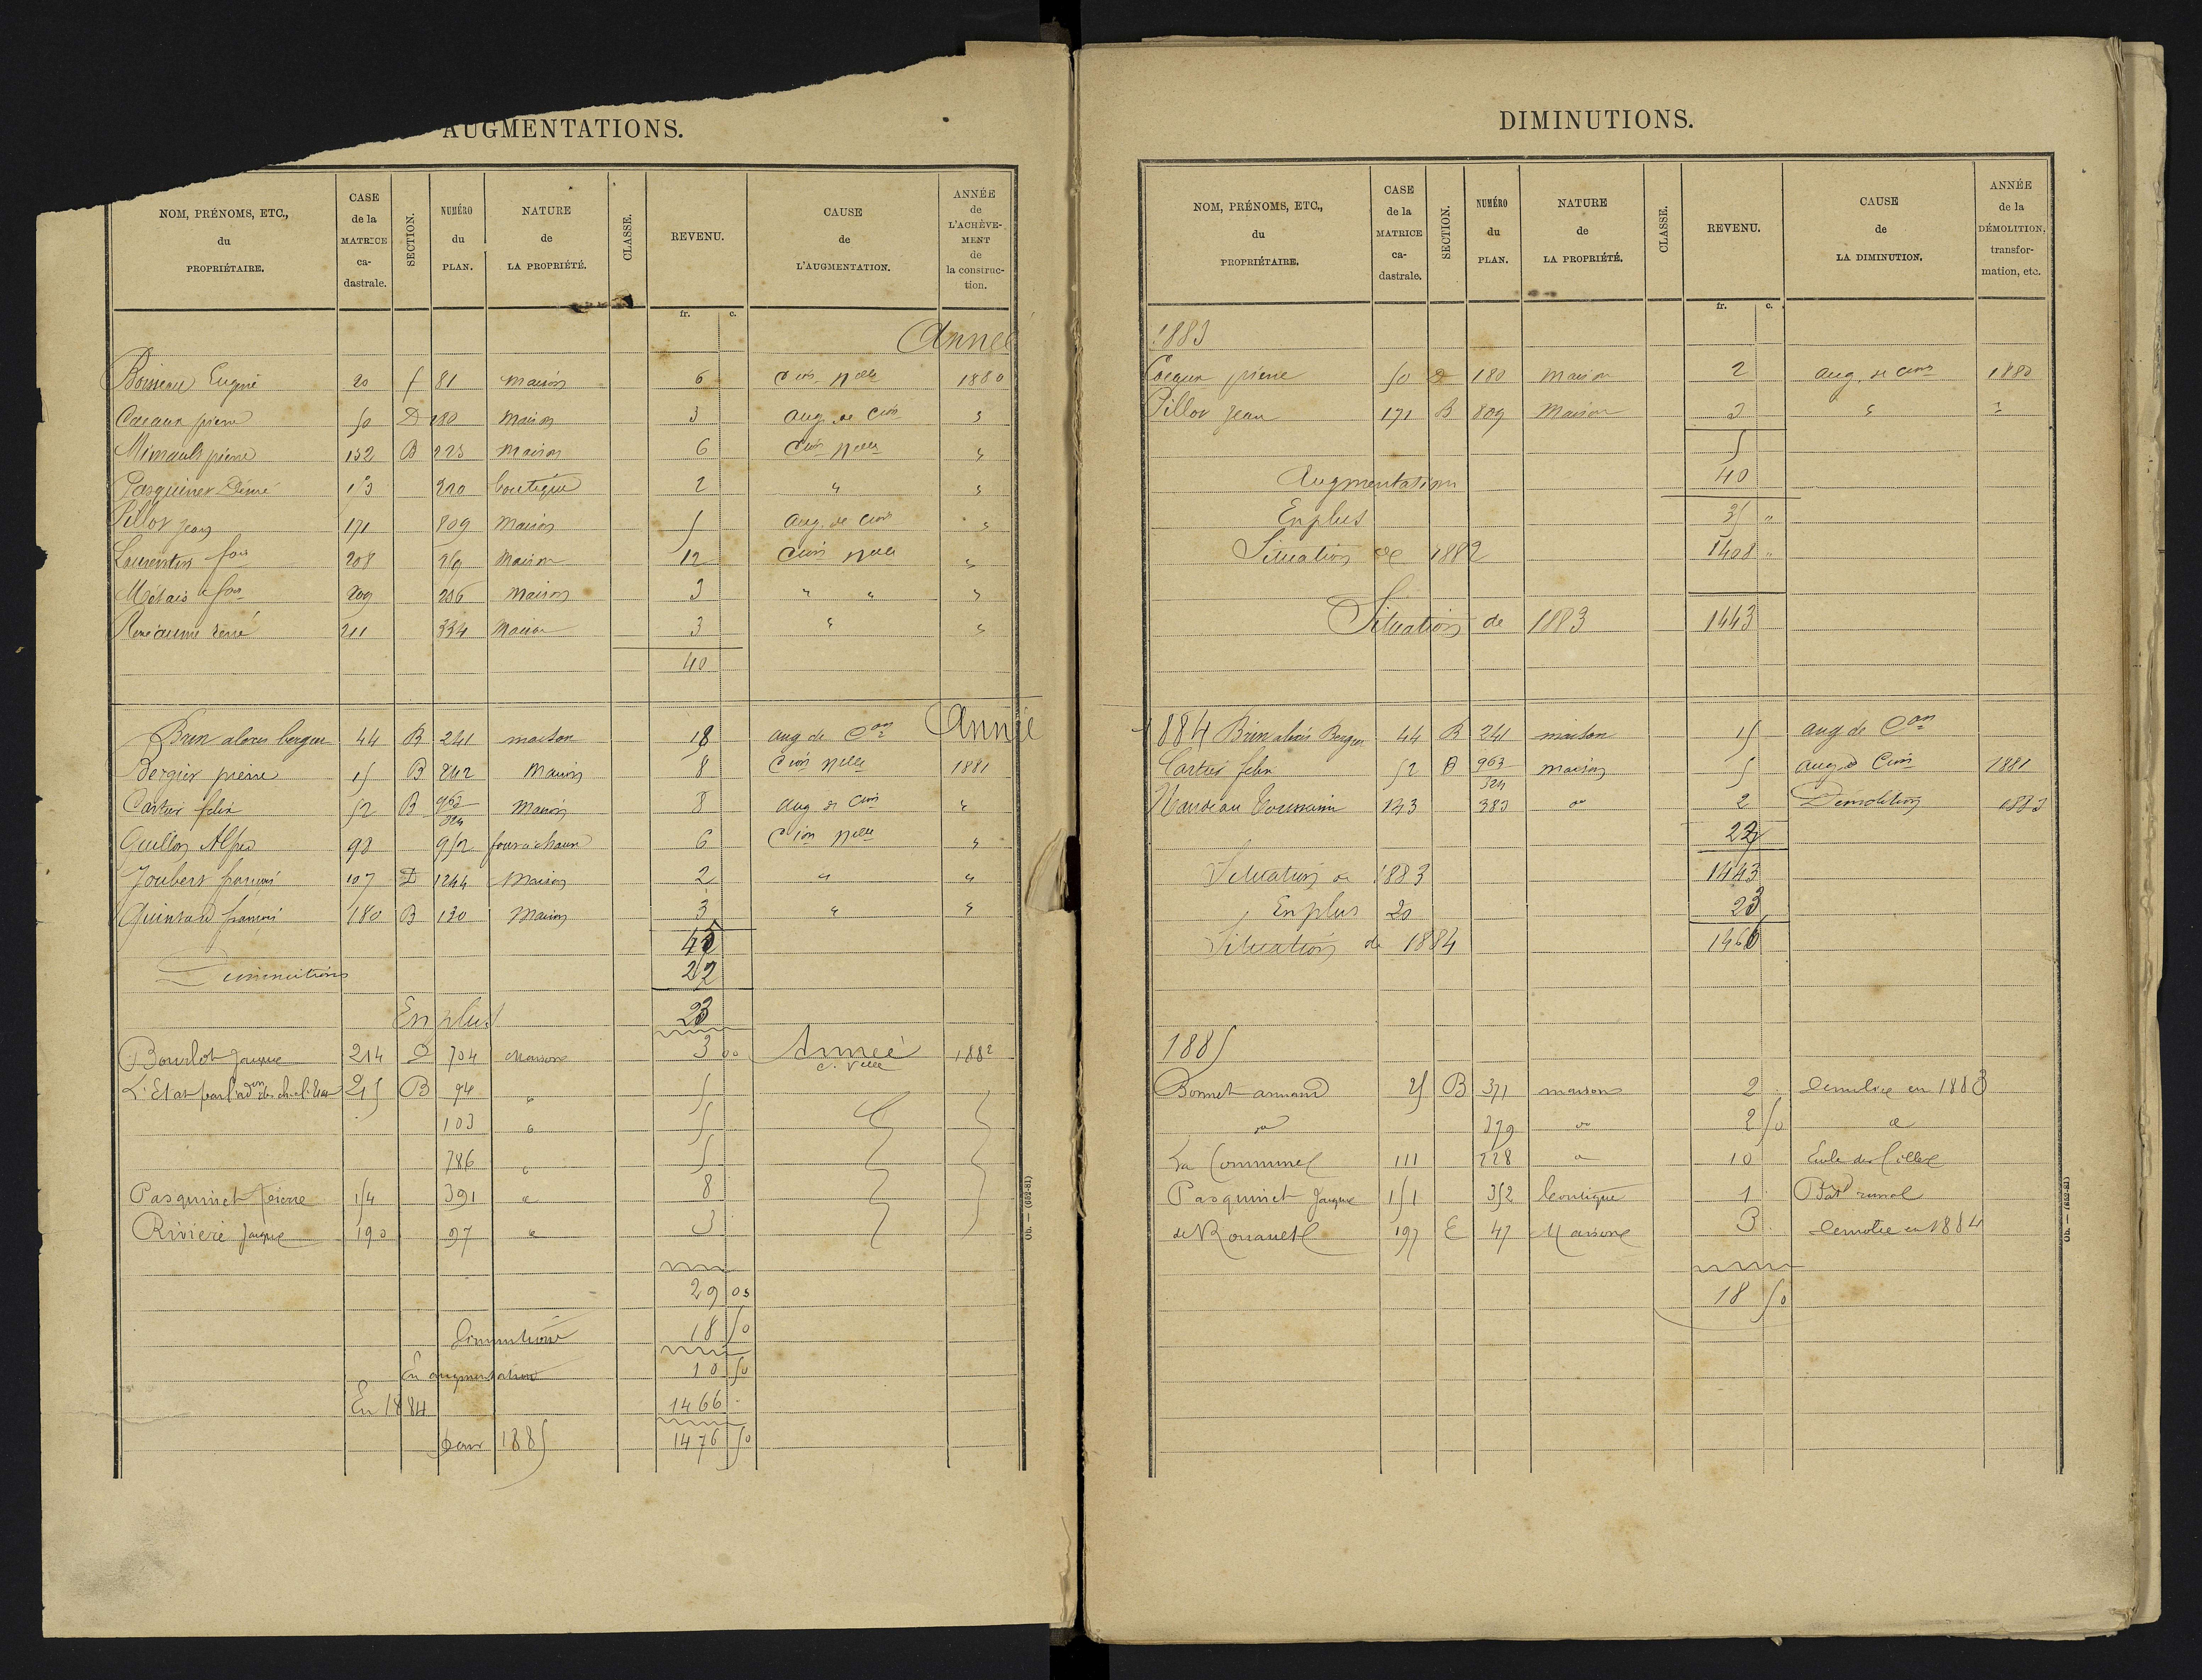 AUGMENTATIONS.
NOM, PRÉNOMS, ETC., du PROPRIÉTAIRE. CASE de la MATRICE ca-dastrale. SECTION. NUMÉRO du PLAN. NATURE de LA PROPRIÉTÉ. CLASSE. REVENU. CAUSE de L'AUGMENTATION. ANNÉE de L'ACHÈVE-MENT de la construc-tion.
fr. c.
Année
Boisseau Eugène 20 f 81 maison 6 Con nelle 1880
Caeaux pierre 50 D 180 Maison 3 aug. de Con "
Minault pierre 132 B 223 Maison 6 Con nelle "
Pasquinet Désiré 153 220 boutique 2 " "
Pillot Jean 171 809 Maison 5 aug. de Con "
Laurentin fois 208 Maison 12 Con nelle "
Métais fois 209 206 Maison 3 " " "
René 211 334 Maison 3 " "
40
Brun alexis berger 44 B 241 maison 18 aug de Con Année
Bergier pierre 15 B 242 Maison 8 Con nelle 1881
Cartier felix 52 B 963 324 Maison 8 aug de Con "
Guillon Alfred 98 952 four à chaux 6 Con nelle "
Joubert françois 107 D 1244 Maison 2 " "
Quintard françois 180 B 130 Maison 3 " "
45
Diminutions 22
En plus 23
Bourlot Jacques 214 D 704 Maison 3 00 Année C. Nelle 1882
L'Etat par l'adon des ch. de l'Etat 215 B 94 " 5
103 " 5
786 " 5
Pasquinet Pierre 154 391 " 8
Rivière Jacques 190 97 " 3
29 00
Diminutions 18 50
En augmentation 10 50
En 1884 1466
pour 1885 1476 50
Ob. — (652-81)
DIMINUTIONS.
NOM, PRÉNOMS, ETC., du PROPRIÉTAIRE. CASE de la MATRICE ca-dastrale. SECTION. NUMÉRO du PLAN. NATURE de LA PROPRIÉTÉ. CLASSE. REVENU. CAUSE de LA DIMINUTION. ANNÉE de la DÉMOLITION, transfor-mation, etc.
fr. c.
1883
Caeaux pierre 50 D 180 Maison 2 aug. de Con 1880
Pillot Jean 171 B 809 Maison 3 " "
5
Augmentation 40
En plus 35 "
Situation de 1882 1408 "
Situation de 1883 1443
1884 Brun alexis Berger 44 B 241 maison 15 aug de Con
Cartier felix 52 B 963 324 maison 5 aug de Con 1881
Nardeau Toussaint 143 383 do 2 Démolition 1883
22
Situation de 1883 1443
En plus 20 23
Situation de 1884 1466
1885
Bonnet armand 25 B 371 maison 2 Demolie en 1883
do 379 do 2 50 d
La Commune 111 228 d 10 Ecole des filles
Pasquinet Jacques 151 352 boutique 1 Bat rural
de Rouault 197 E 47 Maison 3 Demolie en 1884
18 50
Ob. — (652-81)